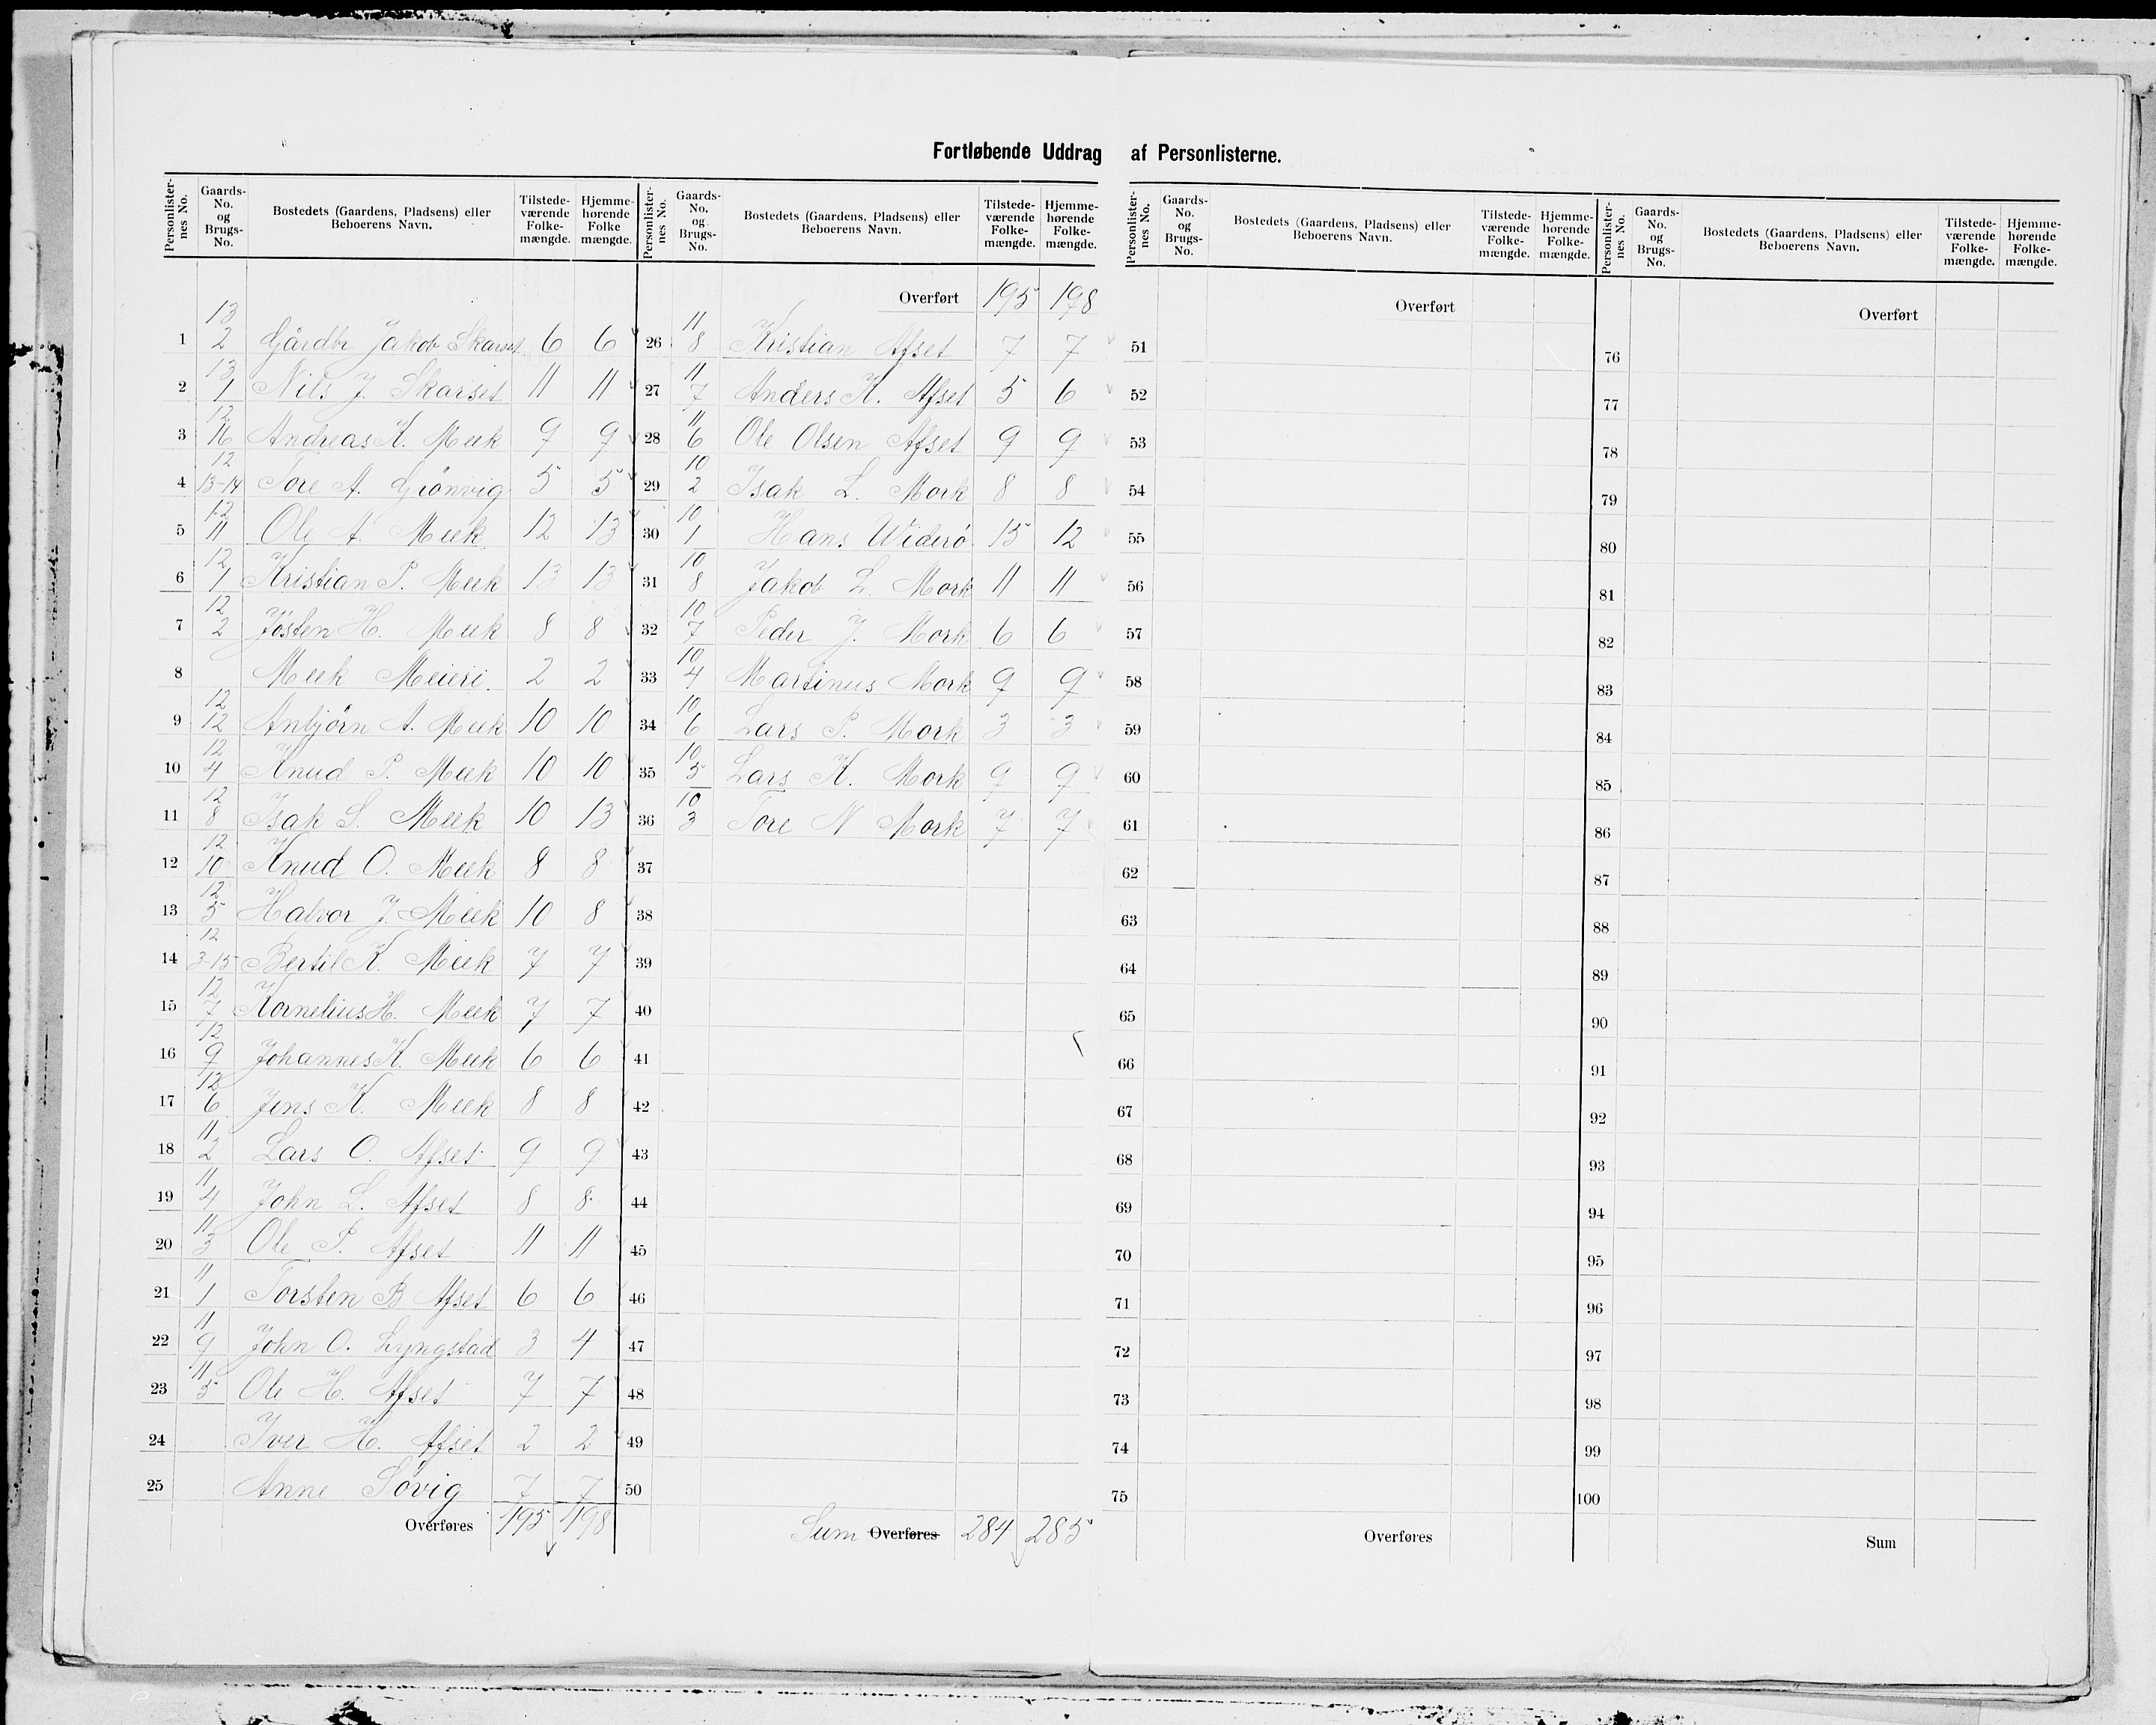 Fortløbende Uddrag af Personlisterne.
Personlisternes No. Gaards-No. og Brugs-No. Bostedets (Gaardens, Pladsens) eller Beboerens Navn. Tilstedeværende Folkemængde. Hjemmehørende Folkemængde.
1 13 2 Gårdbr Jakob Skarset 6 6
2 13 1 Nils J. Skarset 11 11
3 12 16 Andreas K. Meek 9 9
4 12 13-14 Tore A. Grönvig 5 5
5 12 11 Ole A. Meek 12 13
6 12 1 Kristian P. Meek 13 13
7 12 2 Jösten H. Meek 8 8
8 Meek Meieri 2 2
9 12 12 Anbjörn A. Meek 10 10
10 12 4 Knud P. Meek 10 10
11 12 8 Isak S. Meek 10 13
12 12 10 Knud O. Meek 8 8
13 12 5 Halvor J. Meek 10 8
14 12 3-15 Bertil K. Meek 7 7
15 12 7 Kornelius H. Meek 7 7
16 12 9 Johannes K. Meek 6 6
17 12 6 Jens K. Meek 8 8
18 11 2 Lars O. Afset 9 9
19 11 4 John L. Afset 8 8
20 11 3 Ole P. Afset 11 11
21 11 1 Torsten B Afset 6 6
22 11 9 John O. Lyngstad 3 4
23 11 5 Ole H. Afset 7 7
24 Iver H. Afset 2 2
25 Anne Sövig 7 7
Overføres 195 198
Personlisternes No. Gaards-No. og Brugs-No. Bostedets (Gaardens, Pladsens) eller Beboerens Navn. Tilstedeværende Folkemængde. Hjemmehørende Folkemængde.
Overført 195 198
26 11 8 Kristian Afset 7 7
27 11 7 Anders K. Afset 5 6
28 11 6 Ole Olsen Afset 9 9
29 10 2 Isak L. Mork 8 8
30 10 1 Hans Widerö 15 12
31 10 8 Jakob L. Mork 11 11
32 10 7 Peder J. Mork 6 6
33 10 4 Martinus Mork 9 9
34 10 6 Lars P. Mork 3 3
35 10 5 Lars K. Mork 9 9
36 10 3 Tore N Mork 7 7
37
38
39
40
41
42
43
44
45
46
47
48
49
50
Sum Overføres 284 285
Personlisternes No. Gaards-No. og Brugs-No. Bostedets (Gaardens, Pladsens) eller Beboerens Navn. Tilstedeværende Folkemængde. Hjemmehørende Folkemængde.
Overført
51
52
53
54
55
56
57
58
59
60
61
62
63
64
65
66
67
68
69
70
71
72
73
74
75
Overføres
Personlisternes No. Gaards-No. og Brugs-No. Bostedets (Gaardens, Pladsens) eller Beboerens Navn. Tilstedeværende Folkemængde. Hjemmehørende Folkemængde.
Overført
76
77
78
79
80
81
82
83
84
85
86
87
88
89
90
91
92
93
94
95
96
97
98
99
100
Sum